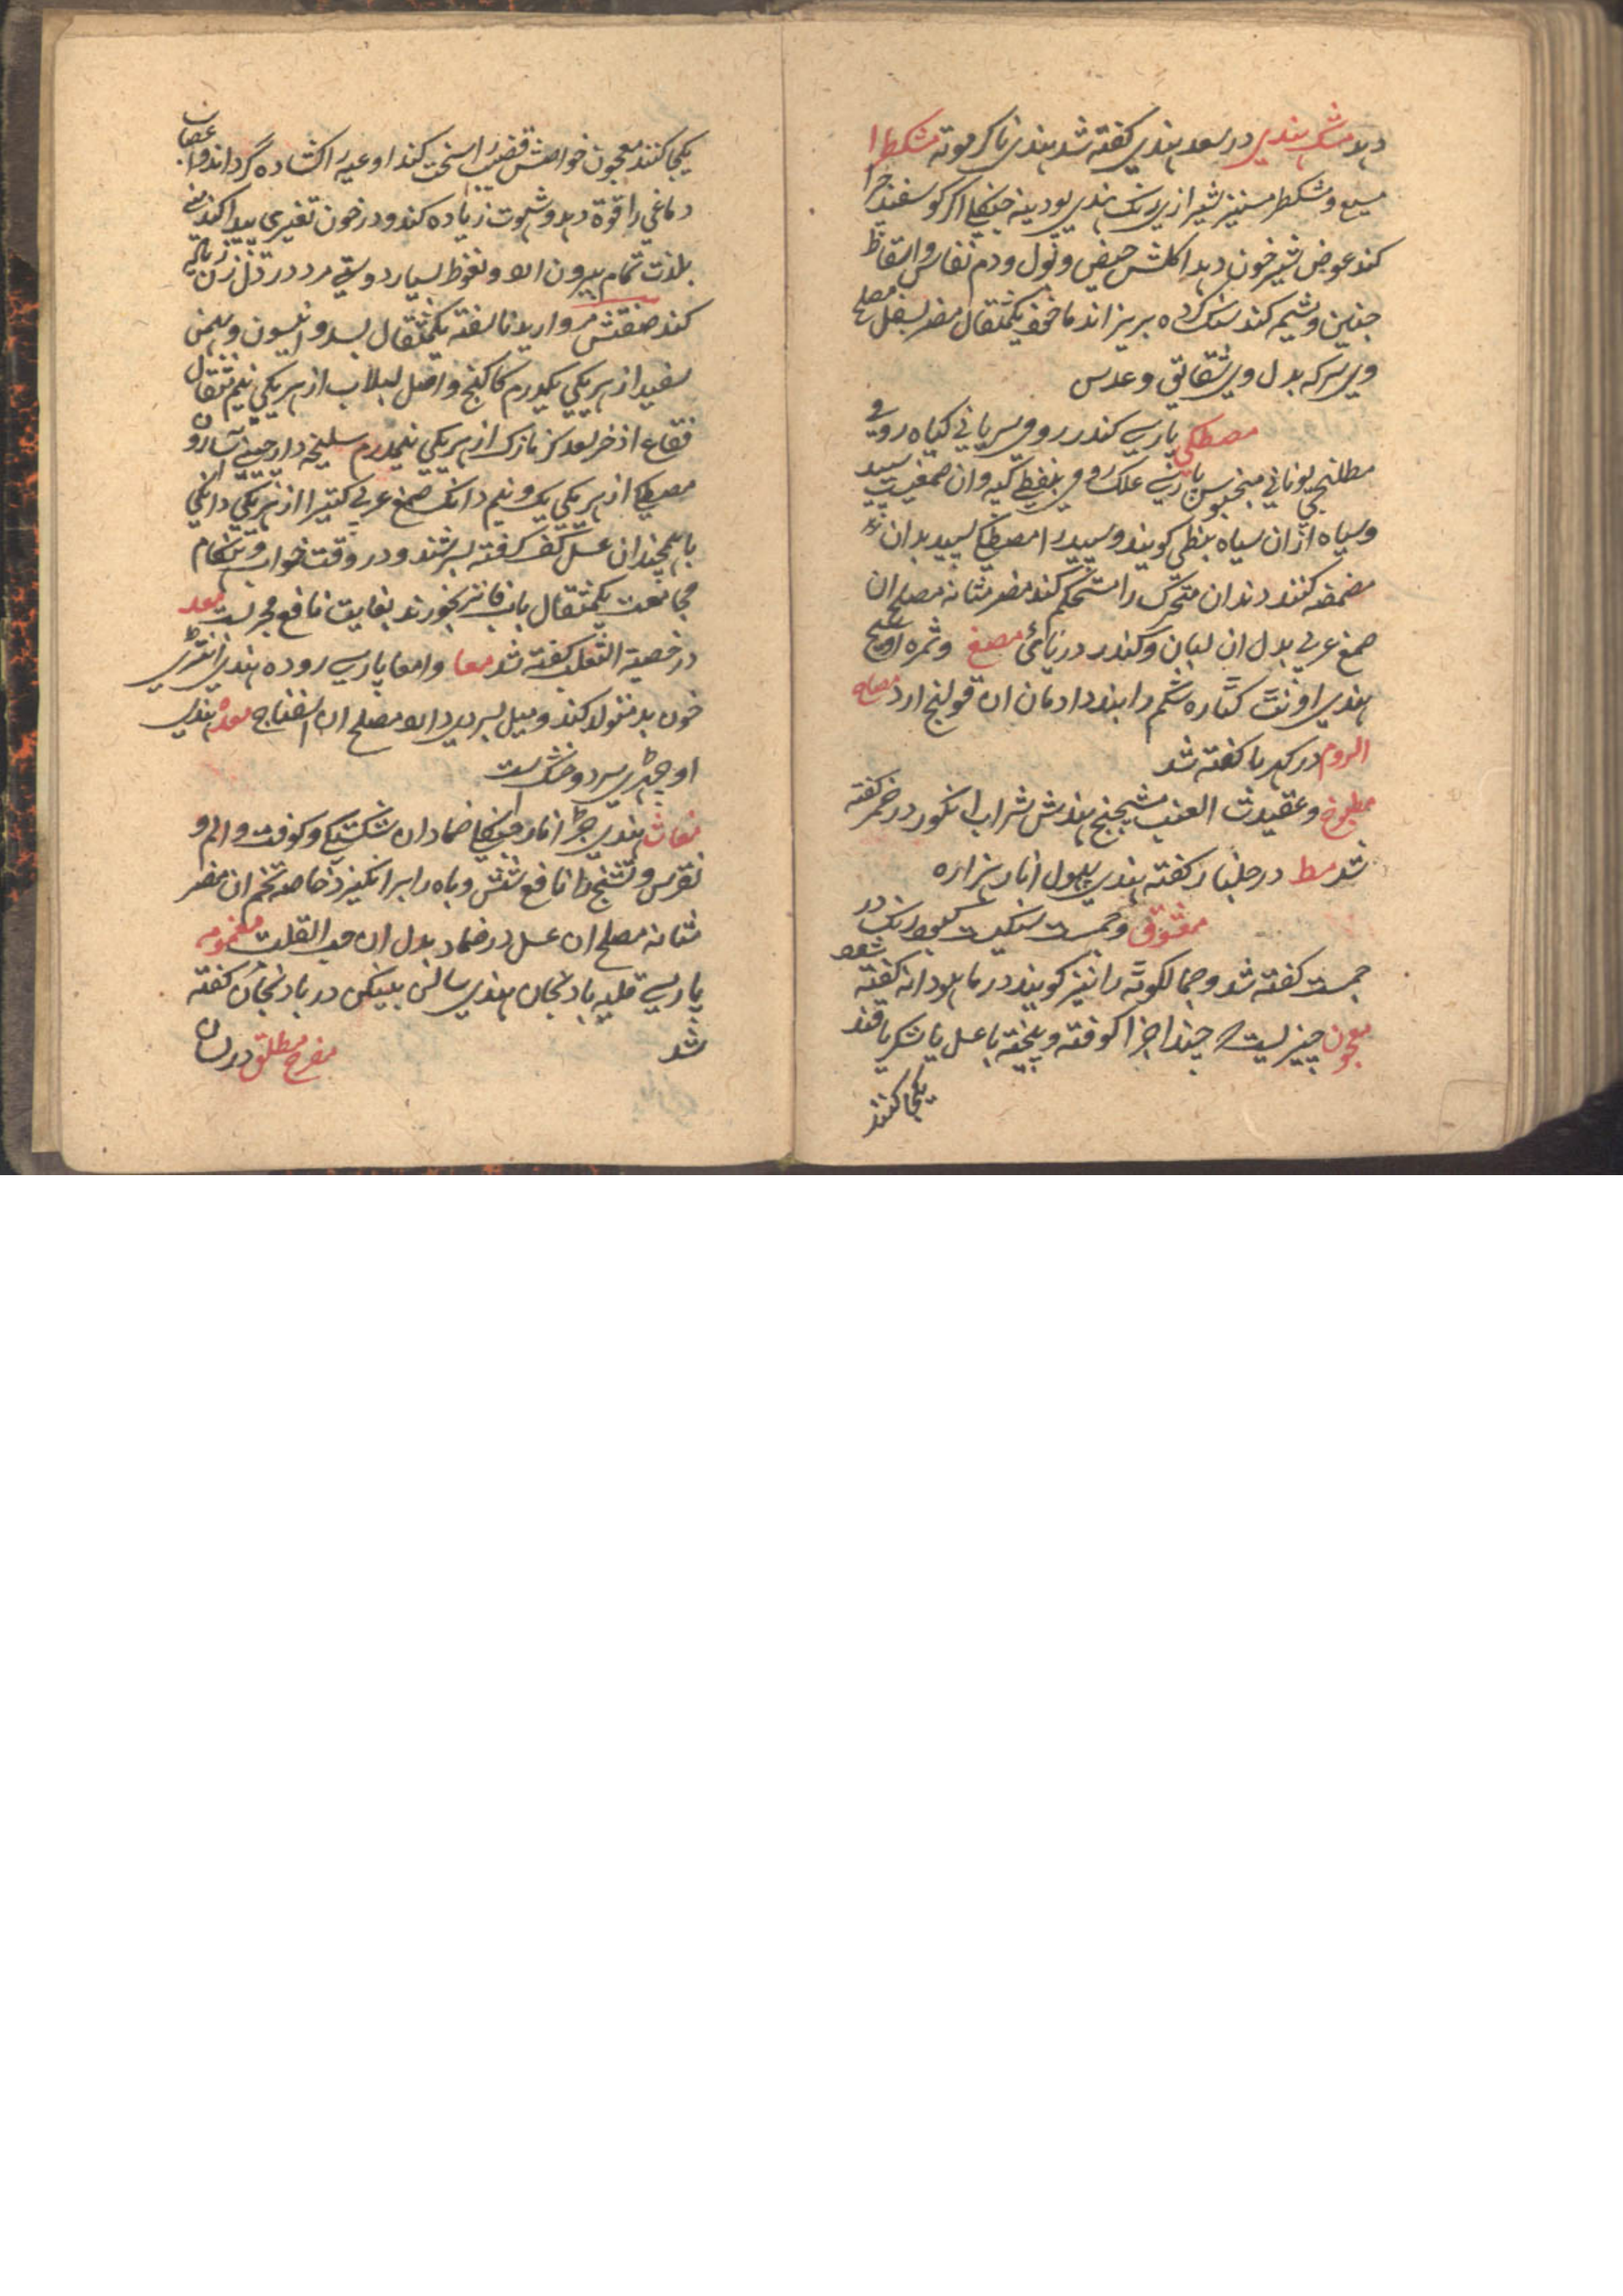 دهد مشک هندی در سعد هندی کفته شد هندی ناکر موته مشکطرا
مسیع و مشکطر مسنیز شیرازی هندی پودینه جنکلی اکر کوسفند چرا
کند عوض شیر خون دهد اکلش حیض و بول و دم نفاس و اسقاط
جنین و مشیمه کند سنک کرده بریزاند یکمثقال مضر بسفل مصلح
وی سرکه بدل وی شقایق و عدس
مصطکی پارسی کندر رومی سریانی کیاه رومی
یونانی پارسی علک رومی بنبطی کیه وان صمغیست سپید
وسیاه ازان سیاه بنطی کویند وسپید را مصطکی سپید بدان
مضمضه کنند دندان متحرک را مستحکم کند مضر مثانه مصلح ان
صمغ عربی بدل ان لبان و کندر دریائی مصع وثمره
هندی اونت کتاره شکم را ببندد ادمان ان قولنج ارد مصباح
الروم در کهربا کفته شد
مطبوخ و عقیدت العنب هندش شراب انکور در خمر کفته
شد مظ در جلنار کفته هندی پهول انار هزاره
معقوق وجمست سنکیست در
جمست کفته شد وجمالکوته را نیز کویند در ماهودانه کفته شود
معجون چیزیست که چند اجزا کوفته و بیخته با عسل یا شکر یا قند
یکجا کنند
یکجا کنند معجون خواهش قضیب را سخت کند اوعیه را کشاده کرداند و اعصاب
دماغی را قوة دهد و شهوت زیاده کند و در خون تغیری پیدا کند منی
بلذت تمام بیرون اید و نعوظ بسیار دوستی مرد در دل زن زیاده
کند صفتش مروارید ناسفته یکمثقال بسد و انیسون و بهمن
سفید از هر یکی یکدرم کاکنج واصل لبلاب از هر یکی نیم مثقال
فقاع اذخر سعد کزمازک از هر یکی نیمدرم سلیخه دارچینی اسارون
مصطکی از هر یکی یک و نیم دانک صمغ عربی کتیرا از هر یکی دانکی
با همچندان عسل کف کرفته بسرشند و در وقت خواب و هنکام
مجامعت یکمثقال باب فاتر بخورند بغایت نافع مجربست معد
در خصیة الثعلب کفته شد معا وامعا پارسی روده هندی انتری
خون بد متولد کند و میل بسردی دارد مصلح ان اسفناج معده هندی
اوجهری سرد و خشکست
مغاث هندی جر انار جنکلی ضماد ان شکستکی و کوفت و الم و
نقرس و تشنج را نافع شربش و باه را برانکیزد خاصه تخم ان مضر
مثانه مصلح ان عسل در ضماد بدل ان حب القلت مغمومه
پارسی قلیه بادنجان هندی سالن بینکن در بادنجان کفته
شد مفرح مطلق در لسان